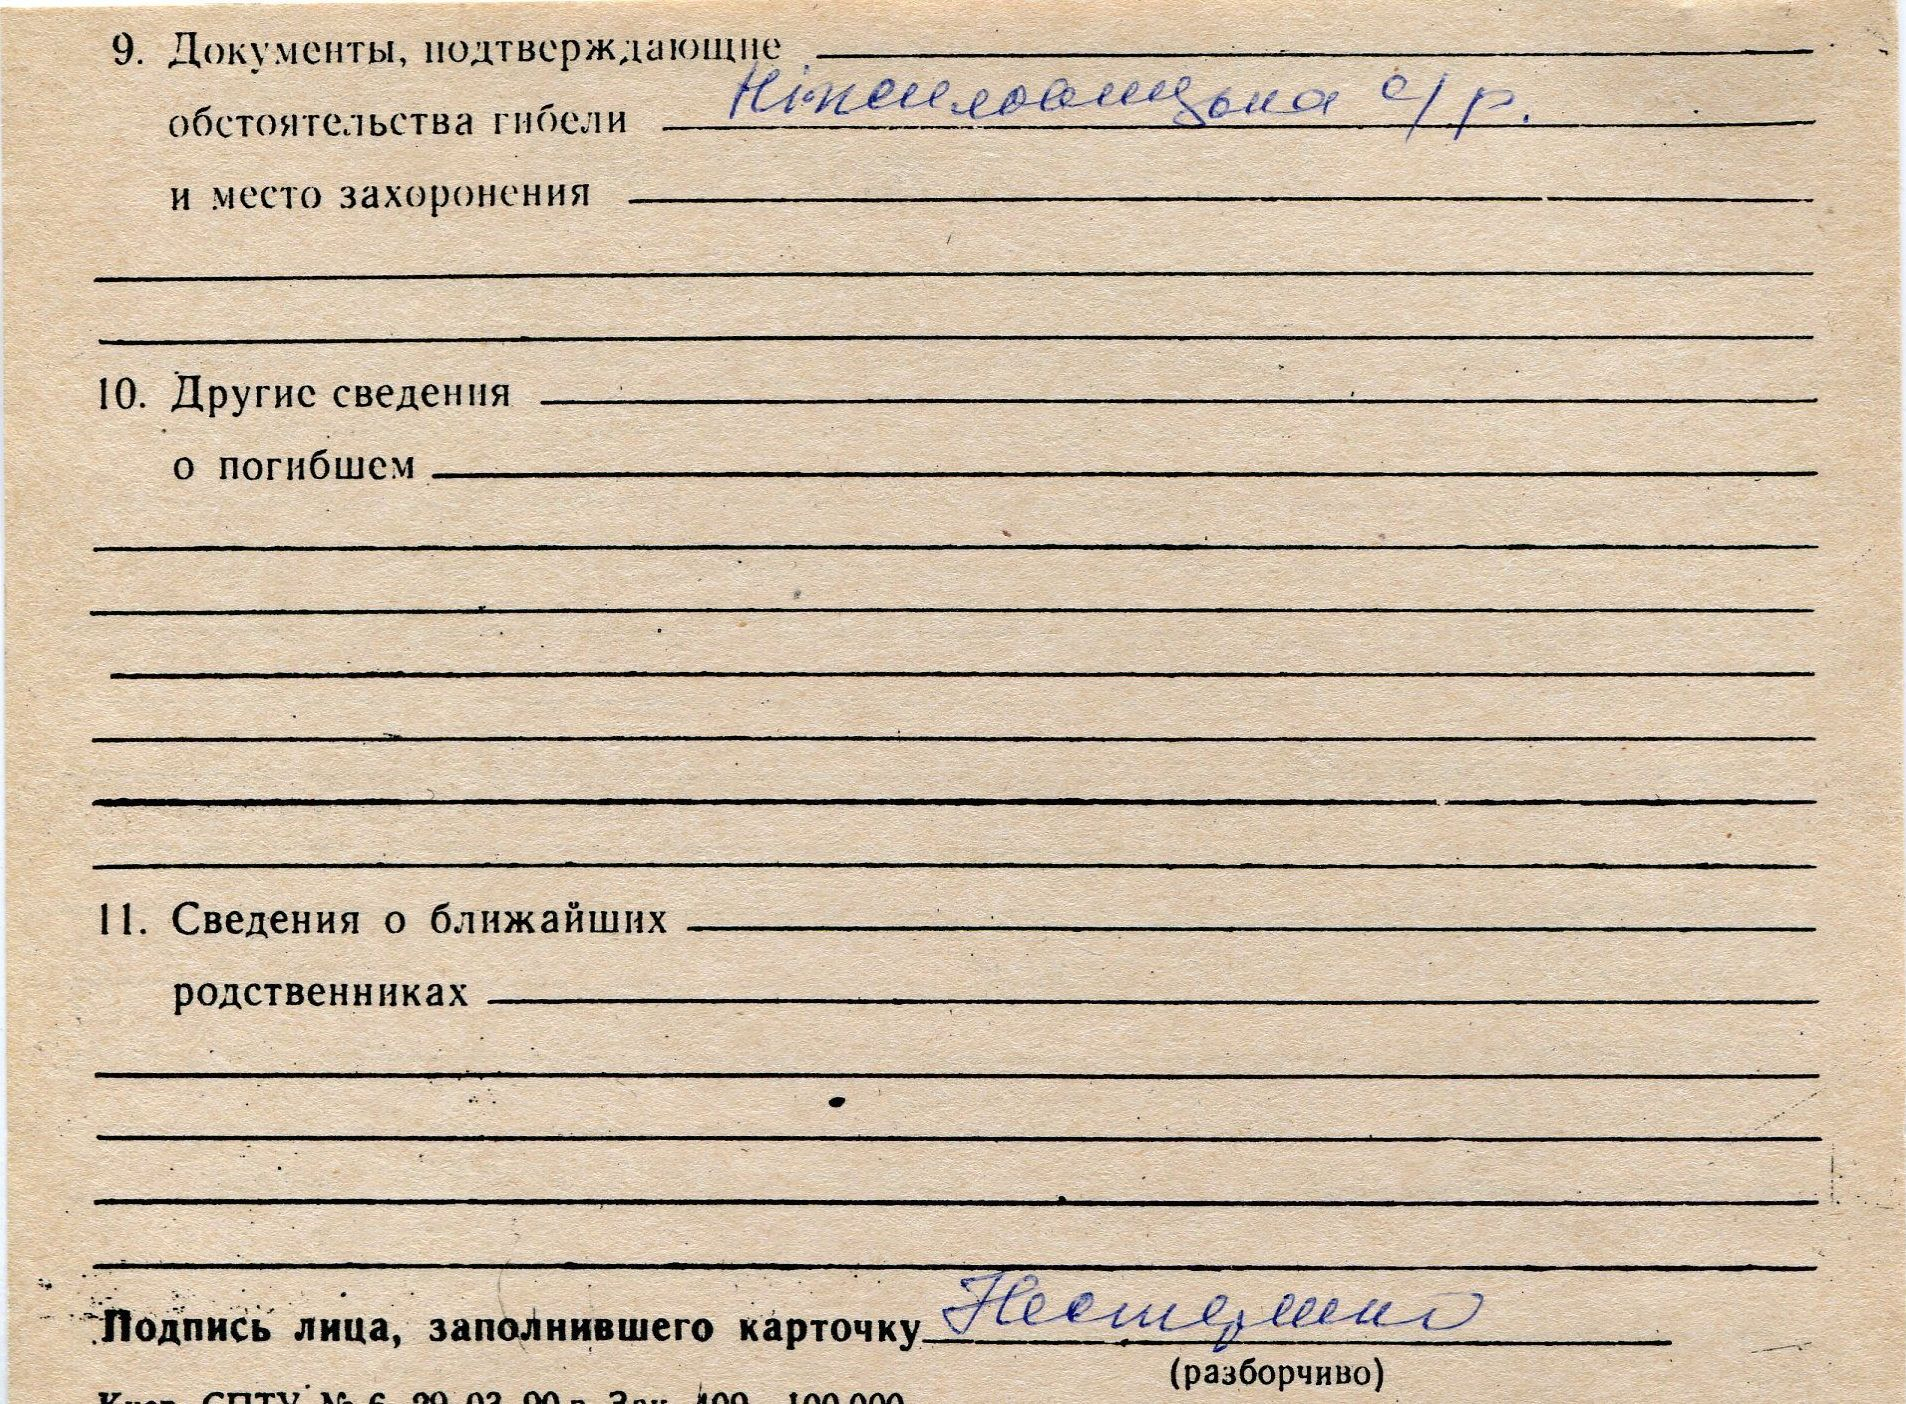 9. Документы, подтверждающие
обстоятельства гибели с/р.
и место захоронения
10. Другие сведения
о погибшем
11. Сведения о ближайших
родственниках
Подпись лица, заполнившего карточку
(разборчиво)
Киев. СПТУ № 6. 29. 03. 90 г. Зак. 499—100.000